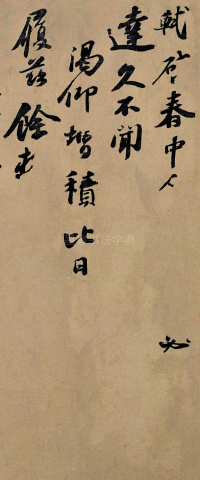 軾啓春中人
必
達久不聞
渴仰增積比日
履茲餘